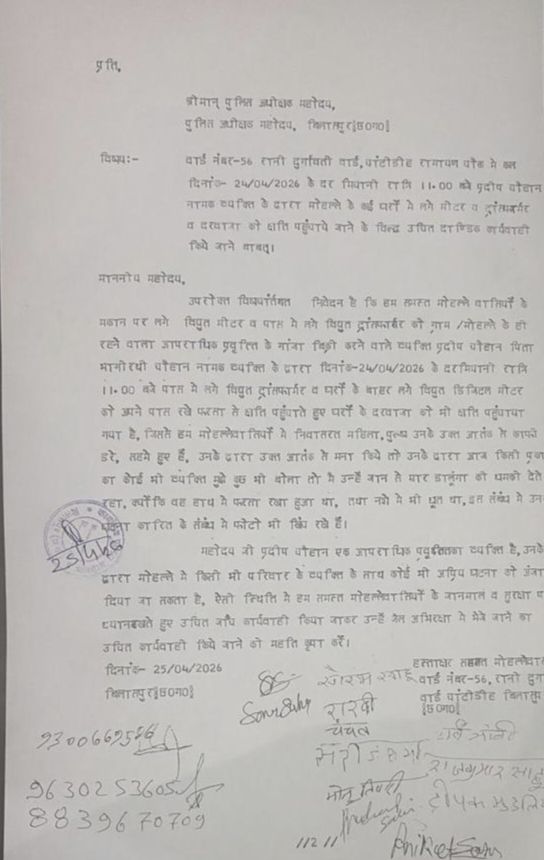 प्रति,
श्रीमान् पुलिस अधीक्षक महोदय,
पुलिस अधीक्षक महोदय, बिलासपुर[छ0ग0]
विषय:- वार्ड नंबर-56 रानी दुर्गावती वार्ड, चांटीडीह रामायण चौक मे कल
दिनांक- 24/04/2026 के दर मियानी रात्रि 11.00 बजे प्रदीप चौहान
नामक व्यक्ति के द्वारा मोहल्ले के कई घरों मे लगे मीटर व ट्रांसफार्मर
व दरवाजा को क्षति पहुंचाये जाने के विरूद्ध उचित दाण्डिक कार्यवाही
किये जाने बाबत्।
माननीय महोदय,
उपरोक्त विषयांतर्गत निवेदन है कि हम समस्त मोहल्ले वासियों के
मकान पर लगे विद्युत मीटर व पास मे लगे विद्युत ट्रांसफार्मर को ग्राम /मोहल्ले के ही
रहने वाला आपराधिक प्रवृत्ति के गांजा बिक्री करने वाले व्यक्ति प्रदीप चौहान पिता
भागीरथी चौहान नामक व्यक्ति के द्वारा दिनांक-24/04/2026 के दरमियानी रात्रि
11.00 बजे पास मे लगे विद्युत ट्रांसफार्मर व घरों के बाहर लगे विद्युत डिजिटल मीटर
को अपने पास रखे फरसा से क्षति पहुंचाते हुए घरों के दरवाजा को भी क्षति पहुंचाया
गया है, जिससे हम मोहल्लेवासियों मे निवासरत महिला,पुरूष उनके उक्त आतंक से काफी
डरे, सहमे हुए हैं, उनके द्वारा उक्त आतंक से मना किये तो उनके द्वारा आज किसी
का कोई भी व्यक्ति मुझे कुछ भी बोला तो मै उन्हें जान से मार डालूंगा की धमकी देते
रहा, क्योंकि वह हाथ मे फरसा रखा हुआ था, तथा नशे मे भी धूत था, इस संबंध मे उन
घटना कारित के संबंध मे फोटो भी खिंच रखे हैं।
महोदय जी प्रदीप चौहान एक आपराधिक प्रवृत्तिका व्यक्ति है, उनके
द्वारा मोहल्ले मे किसी भी परिवार के व्यक्ति के साथ कोई भी अप्रिय घटना को अंजा
दिया जा सकता है, ऐसी स्थिति मे हम समस्त मोहल्लेवासियों के जानमाल व सुरक्षा प
ध्यानरखते हुए उचित जांच कार्यवाही किया जाकर उन्हें जेल अभिरक्षा मे भेजे जाने का
उचित कार्यवाही किये जाने की महति कृपा करें।
25/4/26
दिनांक- 25/04/2026
बिलासपुर[छ0ग0]
हस्ताक्षर समस्त मोहल्लेवा
वार्ड नंबर-56, रानी दुर्गा
वार्ड चांटीडीह बिलासपु
[छ0ग0]
Sonu Sahu
शारदी
चंचल
9630253605
8839670709